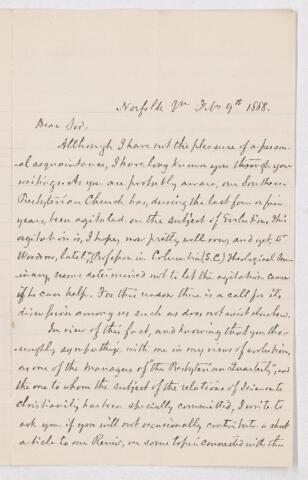 Norfolk Va. Feb. 9th 1888.
Dear Sir,
Although I have not the pleasure of a person-
al acquaintance, I have long known you through your
writings. As you are probably aware, our Southern
Presbyterian Church has, during the last four or five
years, been agitated on the subject of Evolution. This
agitation is, I hope, now pretty well over; and yet, Dr
Woodrow, lately Professor in Columbia (S.C.) Theological Sem-
inary, seems determined not to let the agitation cease
if he can help. For this reason there is a call for its
discussion among us such as does not exist elsewhere.
In view of this fact, and knowing that you tho-
roughly sympathise with me in my view of evolution,
as one of the managers of the "Presbyterian Quarterly", and
the one to whom the subject of the relations of Science to
Christianity has been specially committed, I write to
ask you if you will not occasionally contribute a short
article to our Review, on some topic connected with the